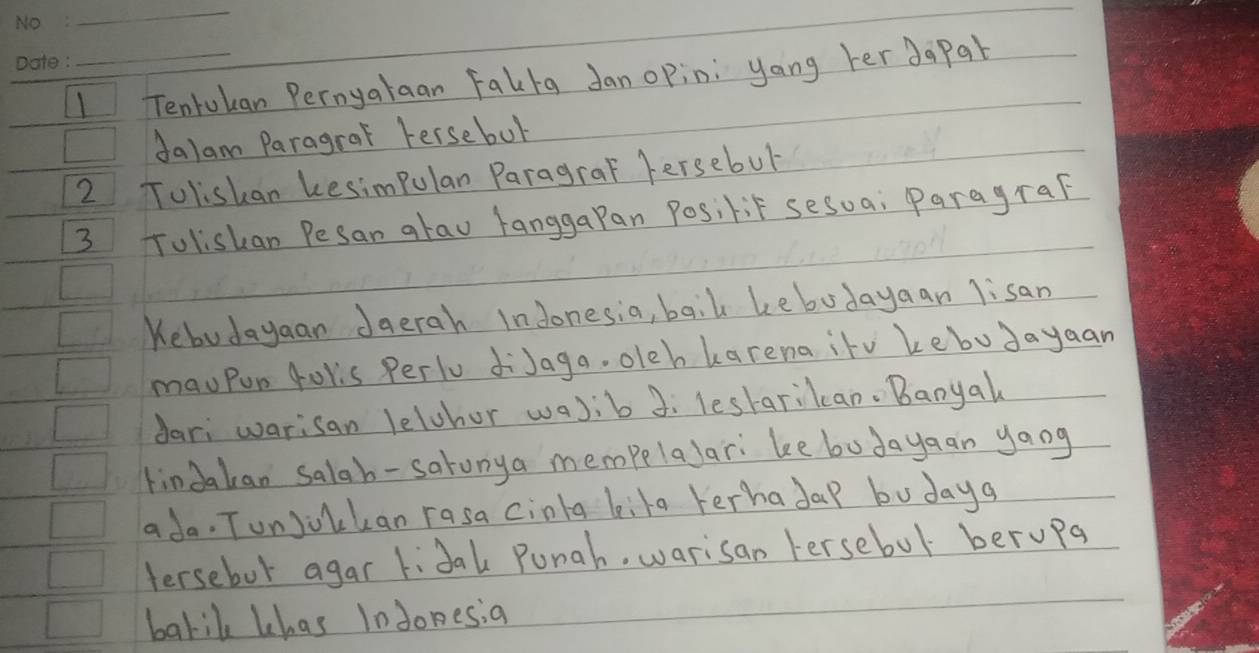 No :
Date :
1 Tentukan Pernyataan Fakta dan opini yang terdapat
dalam Paragraf tersebut
2 Tuliskan kesimpulan Paragraf tersebut
3 Tuliskan Pesan atau tanggapan Positif sesuai paragraf
Kebudayaan daerah Indonesia, baik kebudayaan lisan
maupun tulis perlu dijaga. oleh karena itu kebudayaan
dari warisan leluhur wajib di lestarikan. Banyak
tindakan salah-satunya mempelajari kebudayaan yang
ada. Tunjukkan rasa cinta kita terhadap budaya
tersebut agar tidak Punah. warisan tersebut berupa
batik khas Indonesia